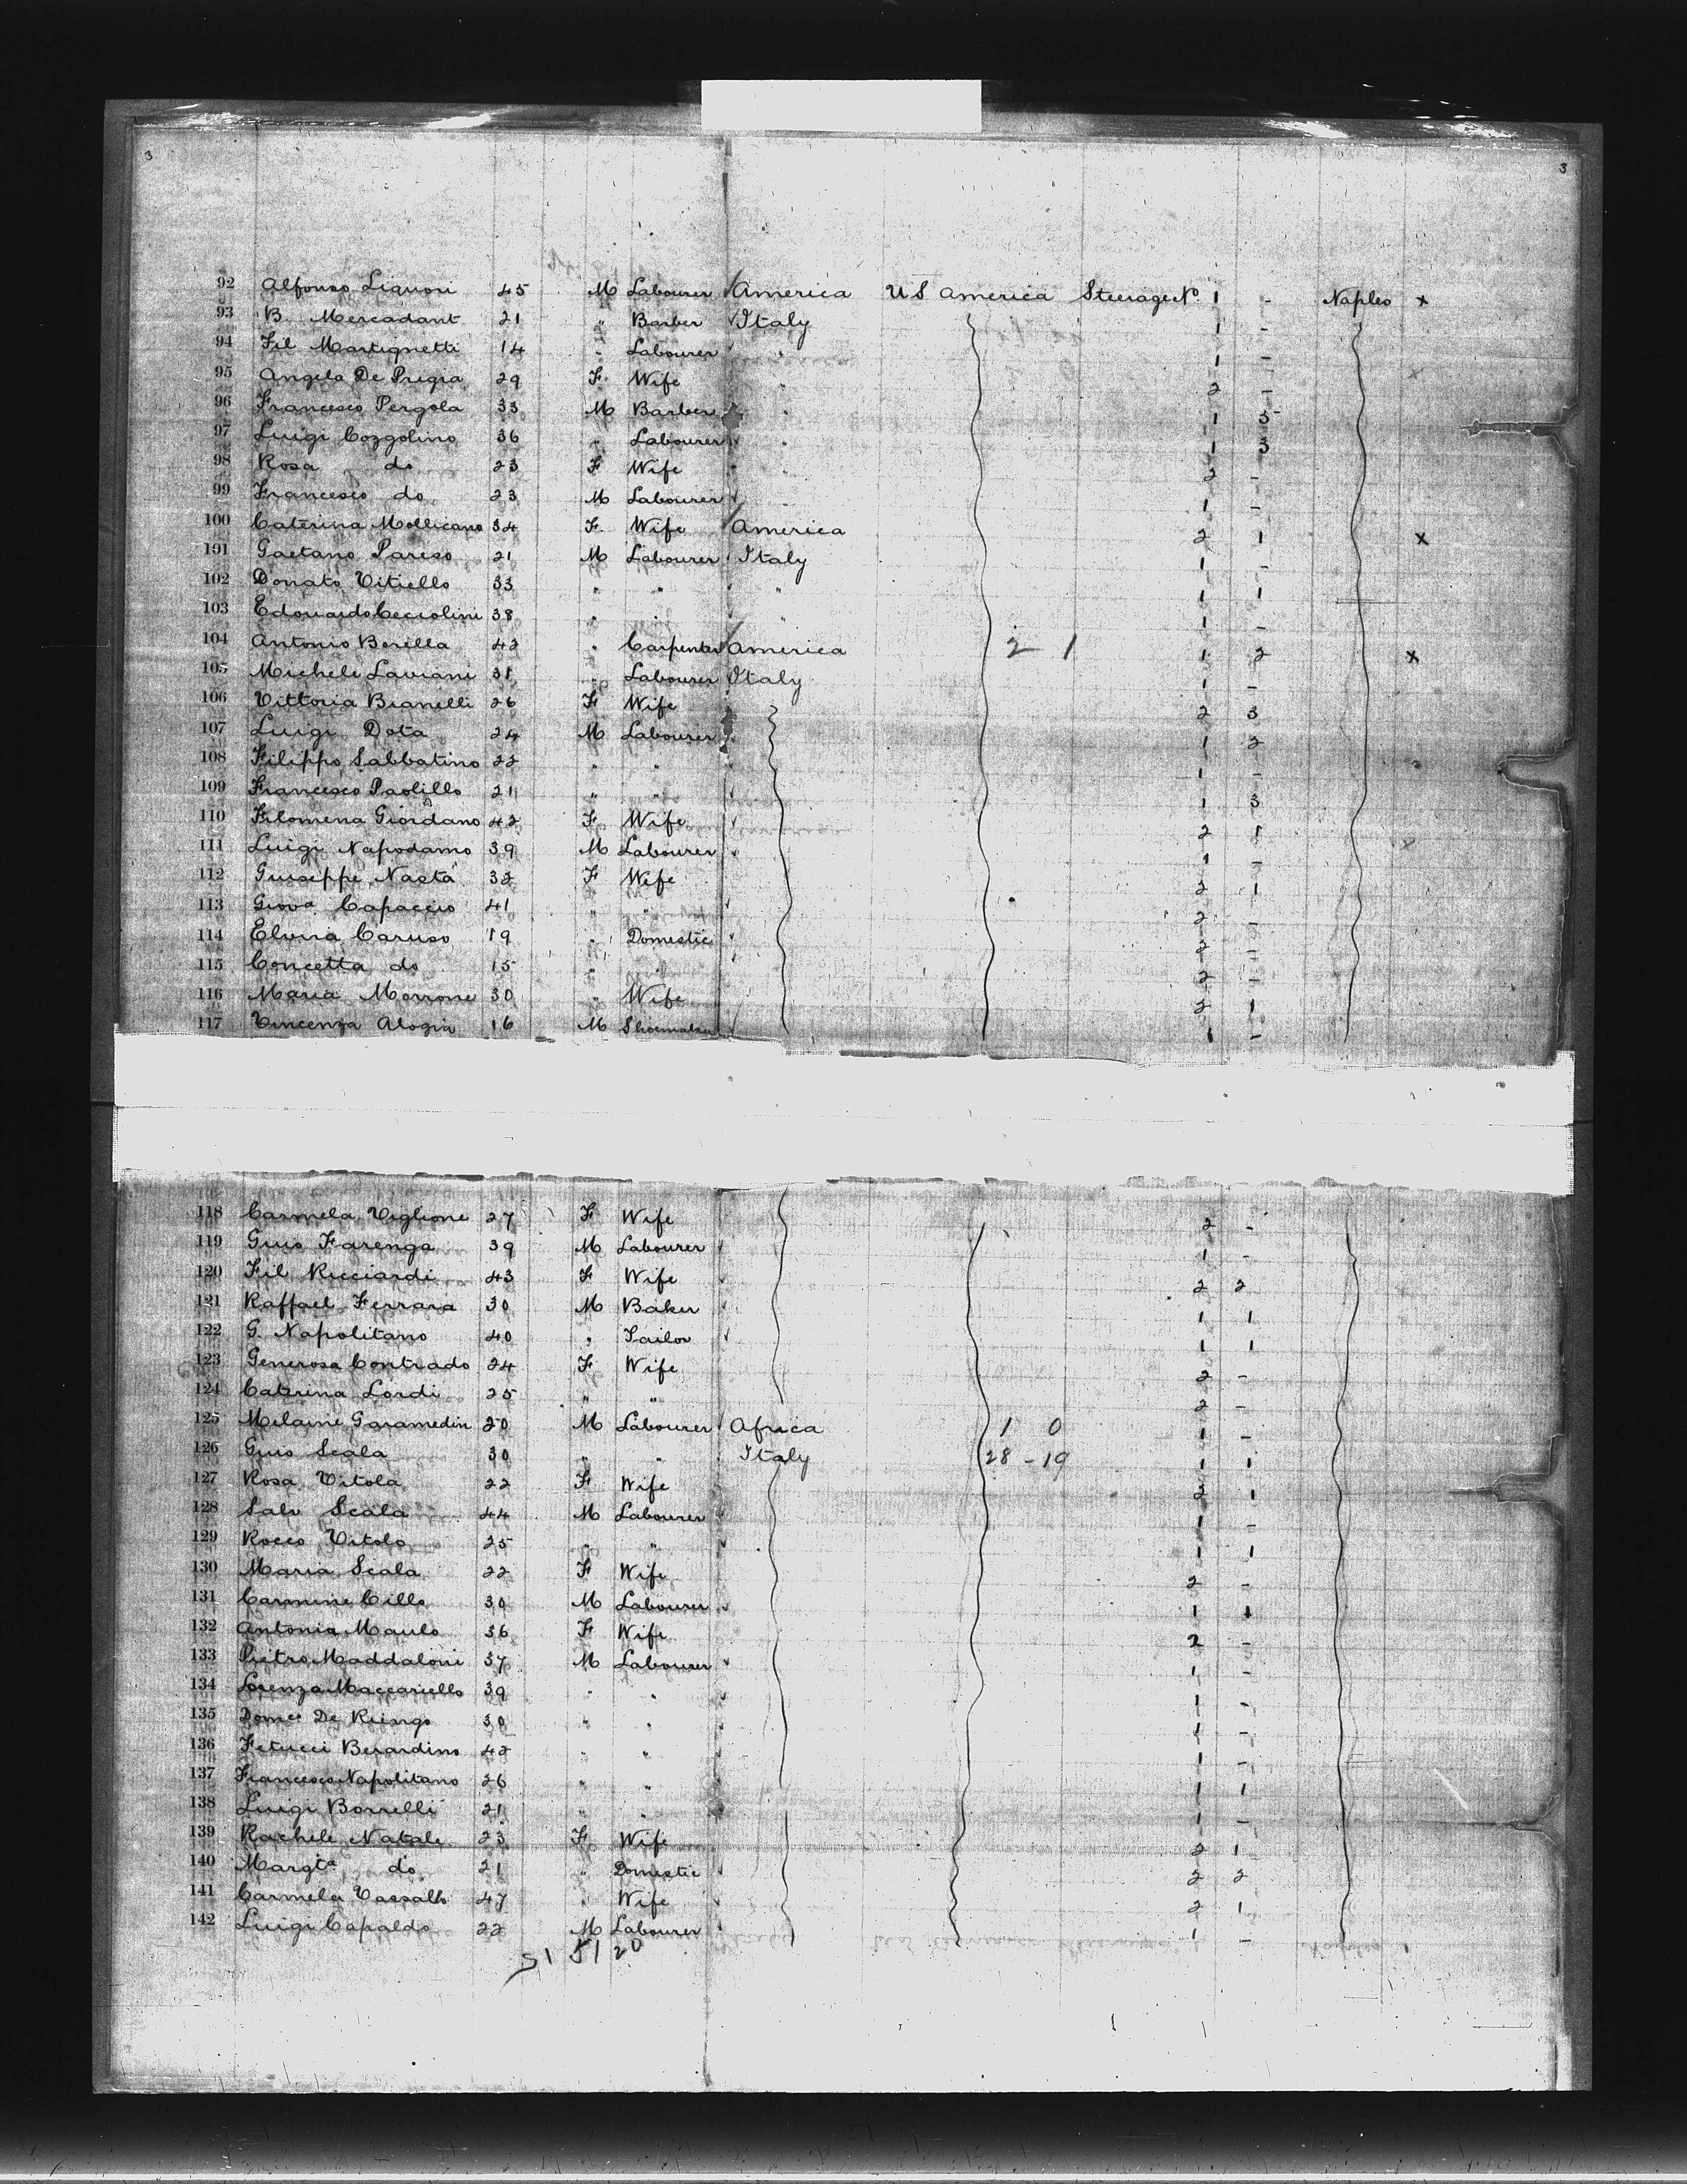 3 3
92 Alfonso Liguori 45 M Labourer America US America Steerage No 1 - Naples x
93 B. Mercadant 21 " Barber Italy 1 -
94 Fil Martignetti 14 " Labourer " 1 -
95 Angela De Prigia 29 F Wife " 2 -
96 Francesco Pergola 33 M Barber " 1 3
97 Luigi Cozzolino 36 " Labourer " 1 3
98 Rosa do 23 F Wife " 2 -
99 Francesco do 23 M Labourer 1 -
100 Caterina Mollicano 34 F Wife America 2 1 x
101 Gaetano Pareso 21 M Labourer Italy 1 -
102 Donato Vitiello 33 " " " 1 1
103 Edouardo Cecciolini 38 " " 1 -
104 Antonio Borella 42 " Carpenter America 2 1 1 2 x
105 Michele Laviani 31 " Labourer Italy 1 -
106 Vittoria Bianelli 26 F Wife 2 3
107 Luigi Dota 24 M Labourer 1 2
108 Filippo Sabbatino 22 " " 1 -
109 Francesco Paolillo 21 " " 1 3
110 Filomena Giordano 42 F Wife 2 1
111 Luigi Napodamo 39 M Labourer 1 -
112 Guiseppe Nasta 32 F Wife 2 1
113 Giova Capaccio 41 " " 2 -
114 Elvira Caruso 19 " Domestic 2 -
115 Concetta do 15 " " 2 -
116 Maria Morrone 30 " Wife 2 1
117 Vincenza Alogia 16 M Shoemaker 1 -
118 Carmela Viglione 27 F Wife 2 -
119 Guis Farenga 39 M Labourer 1 -
120 Fil Ricciardi 43 F Wife 2 2
121 Raffael Ferrara 30 M Baker 1 1
122 G. Napolitano 40 " Tailor 1 1
123 Generosa Contrado 24 F Wife 2 -
124 Caterina Lordi 25 " " 2 -
125 Melaine Garamedin 20 M Labourer Africa 1 0 1 -
126 Guis Scala 30 " " Italy 28 - 19 1 1
127 Rosa Vitola 22 F Wife 2 1
128 Salv Scala 44 M Labourer 1 -
129 Rocco Vitolo 25 " " 1 1
130 Maria Scala 22 F Wife 2 -
131 Carmine Cillo 30 M Labourer 1 1
132 Antonia Maulo 36 F Wife 2 -
133 Pietro Maddaloni 37 M Labourer 1 -
134 Lorenza Maccariello 39 " " 1 -
135 Domce De Riengo 30 " " 1 -
136 Fetucci Berardino 42 " " 1 -
137 Francesco Napolitano 26 " " 1 1
138 Luigi Borrelli 21 " " 1 -
139 Rachele Natale 23 F Wife 2 1
140 Margta do 21 " Domestic 2 2
141 Carmela Vassallo 47 " Wife 2 1
142 Luigi Capaldo 22 M Labourer 1 -
51 51 20